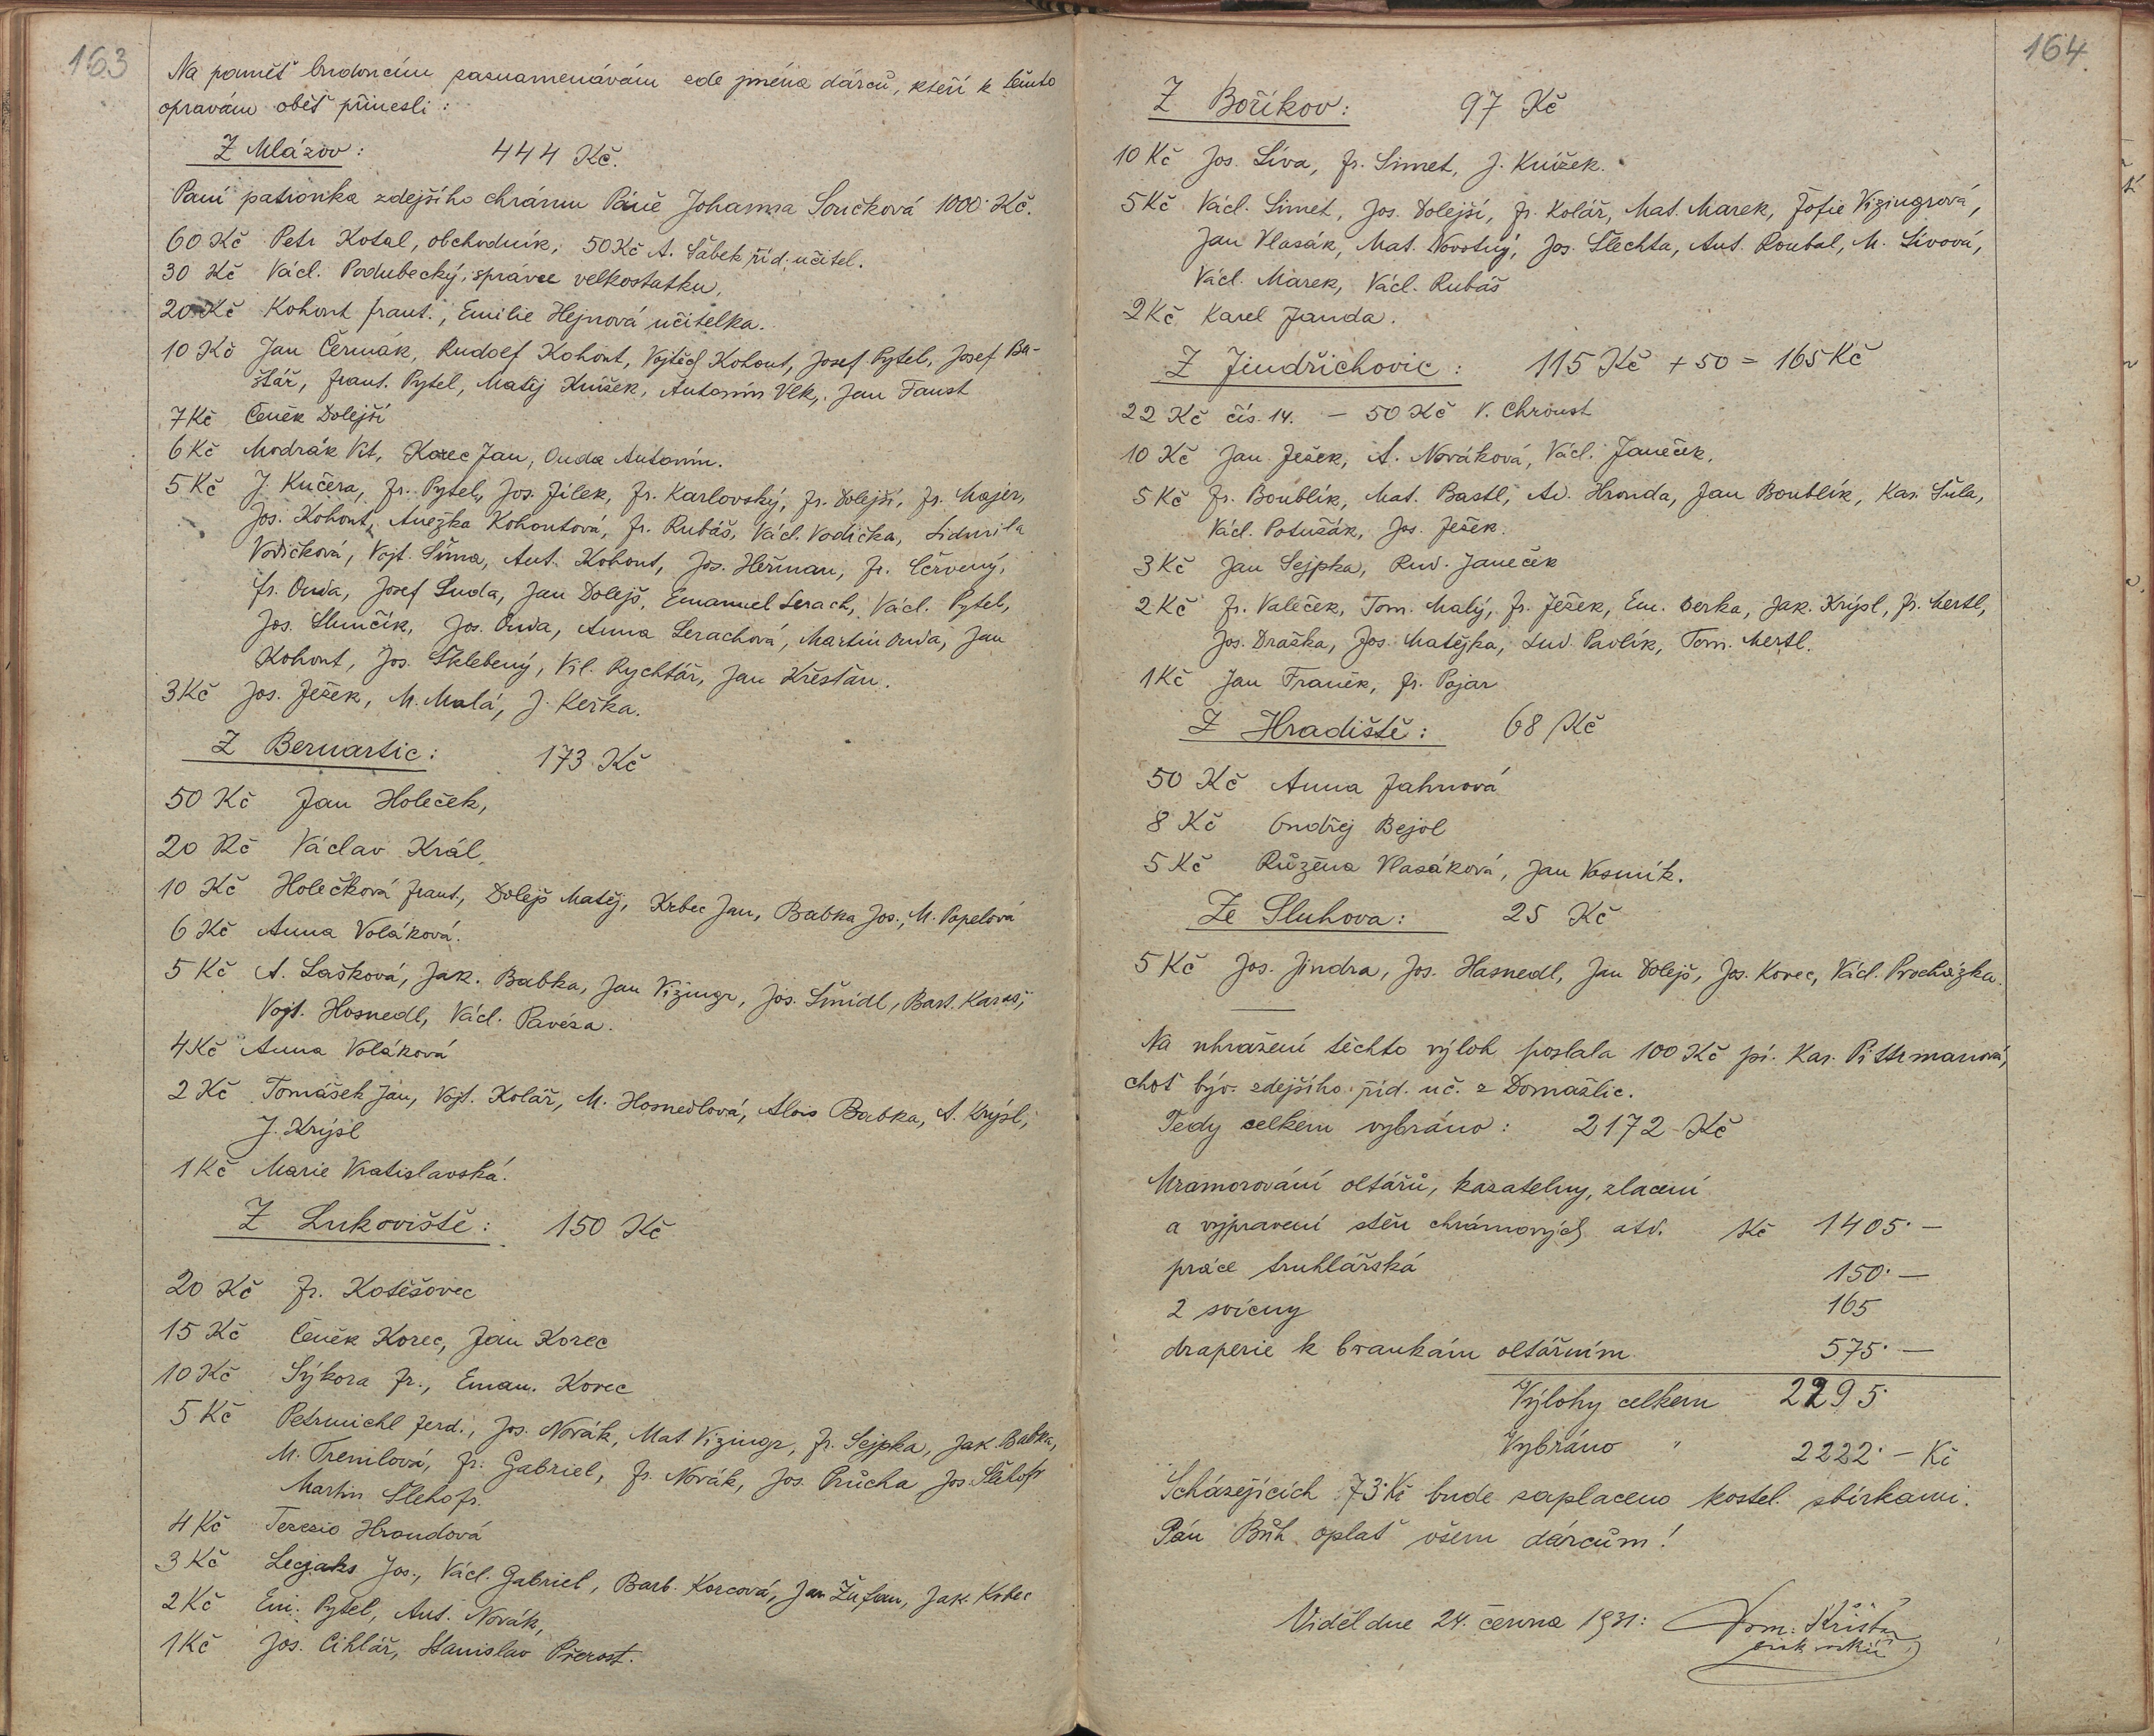 163
Na paměť budoucím zaznamenávám zde jména dárců, kteří k těmto
opravám oběť přinesli :
Z Mlázov : 444 Kč.
Paní patronka zdejšího chrámu Páně Johanna Součková 1000 Kč.
60 Kč Petr Kotal, obchodník, 50 Kč A. Šabek říd. učitel.
30 Kč Václ. Podubecký, správce velkostatku,
20 Kč Kohout frant., Emilie Hejnová učitelka.
10 Kč Jan Čermák, Rudolf Kohout, Vojtěch Kohout, Josef Pytel, Josef Ba-
štář, frant. Pytel, Matěj Knížek, Antonín Vlk, Jan Faust
7 Kč Čeněk Dolejší
6 Kč Modrák Vít, Korec Jan, Ouda Antonín.
5 Kč J. Kučera, Fr. Pytel, Jos. Jílek, Fr. Karlovský, Fr. Dolejší, Fr. Majer,
Jos. Kohout, Anežka Kohoutová, Fr. Rubáš, Václ. Vodička, Lidmila
Vodičková, Vojt. Šíma, Ant. Kohout, Jos. Heřman, Fr. Červený,
Fr. Ouda, Josef Suda, Jan Dolejš, Emanuel Serach, Václ. Pytel,
Jos. Slunčík, Jos. Ouda, Anna Serachová, Martin Ouda, Jan
Kohout, Jos. Šklebený, Vil. Rychtář, Jan Křesťan.
3 Kč Jos. Ježek, M. Malá, J. Keřka.
Z Bernartic : 173 Kč
50 Kč Jan Holeček,
20 Kč Václav Král,
10 Kč Holečková frant., Dolejš Matěj, Krbec Jan, Babka Jos., M. Papelová
6 Kč Anna Voláková.
5 Kč A. Lašková, Jak. Babka, Jan Vizingr, Jos. Šmídl, Bart. Karas,
Vojt. Hosnedl, Václ. Pavéza.
4 Kč Anna Voláková
2 Kč Tomášek Jan, Vojt. Kolář, M. Hosnedlová, Alois Babka, A. Krýsl,
J. Krýsl
1 Kč Marie Vratislavská.
Z Lukoviště : 150 Kč
20 Kč Fr. Kotěšovec
15 Kč Čeněk Korec, Jan Korec
10 Kč Sýkora Fr., Eman. Korec
5 Kč Petrmichl Ferd., Jos. Novák, Mat. Vizingr, Fr. Sejpka, Jak. Babka,
M. Tremlová, Fr. Gabriel, Fr. Novák, Jos. Průcha Jos. Šlehofr
Martin Šlehofr.
4 Kč Terezie Hroudová
3 Kč Lecjaks Jos., Václ. Gabriel, Barb. Korcová, Jan Žufan, Jak. Krbec
2 Kč Em. Pytel, Ant. Novák,
1 Kč Jos. Cihlář, Stanislav Přerost.
164.
Z Boříkov : 97 Kč
10 Kč Jos. Síva, Fr. Simet, J. Knížek.
5 Kč Václ. Simet, Jos. Dolejší, Fr. Kolář, Mat. Marek, Žofie Vizingrová,
Jan Vlasák, Mat. Novotný, Jos. Šlechta, Ant. Roubal, M. Sívová,
Václ. Marek, Václ. Rubáš
2 Kč Karel Janda.
Z Jindřichovic : 115 Kč + 50 = 165 Kč
22 Kč čís. 14. – 50 Kč V. Chroust
10 Kč Jan Ježek, A. Nováková, Václ. Janeček,
5 Kč Fr. Boublík, Mat. Bastl, Ad. Hrouda, Jan Boublík, Kar. Šula,
Václ. Potužák, Jos. Ježek.
3 Kč Jan Sejpka, Rud. Janeček
2 Kč Fr. Valeček, Tom. Malý, Fr. Ježek, Em. Berka, Jak. Krýsl, Fr. Mertl,
Jos. Draška, Jos. Matějka, Lud. Pavlík, Tom. Mertl.
1 Kč Jan Franěk, Fr. Pojar
Z Hradiště : 68 Kč
50 Kč Anna Jahnová
8 Kč Ondřej Bejol
5 Kč Růžena Vlasáková, Jan Vosmík.
Ze Sluhova : 25 Kč
5 Kč Jos. Jindra, Jos. Hasnedl, Jan Dolejš, Jos. Korec, Václ. Procházka.
Na uhražení těchto výloh poslala 100 Kč pí. Kar. Pittrmanová,
choť býv. zdejšího říd. uč. z Domažlic.
Tedy celkem vybráno : 2172 Kč
Mramorování oltářů, kazatelny, zlacení
a vypravení stěn chrámových atd. Kč 1405·—
práce truhlářská 150·—
2 svícny 165
draperie k brankám oltářním 575·—
Výlohy celkem 2295·
Vybráno " 2222·— Kč
Scházejících 73 Kč bude zaplaceno kostel. sbírkami.
Pán Bůh oplať všem dárcům !
Viděl dne 24. června 1931 :